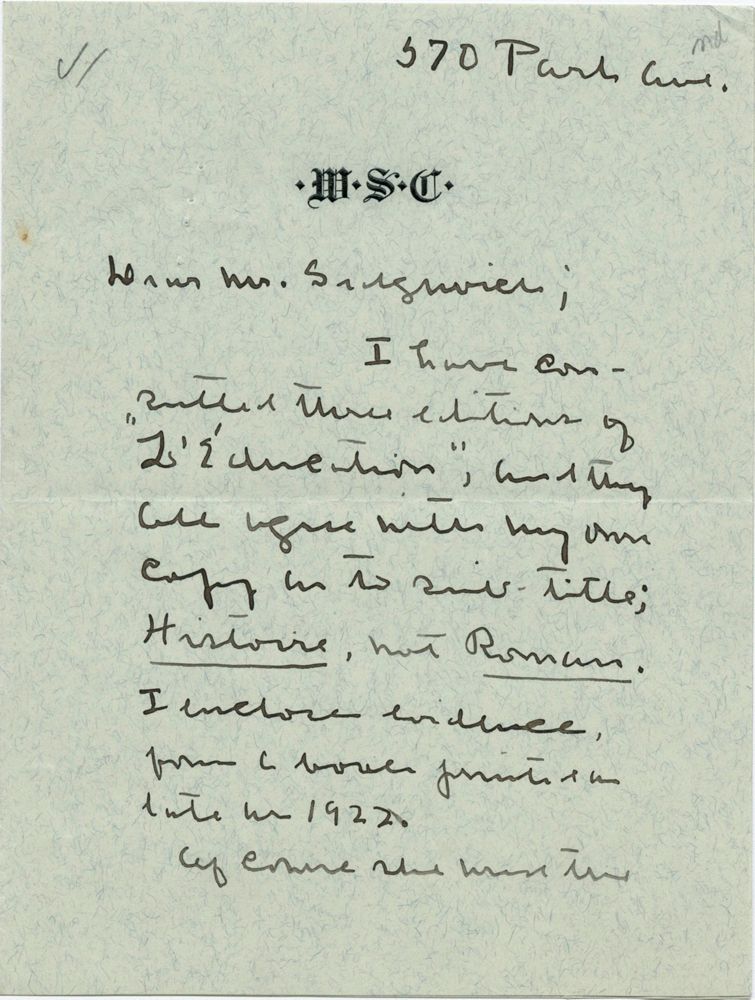 nd
570 Park Ave.
·W·S·C·
Dear Mr. Sedgwick;
I have con-
sulted three editions of
"L'Éducation", and they
all agree with my own
copy as to sub-title;
Histoire, not Roman.
I enclose evidence,
from a book printed as
late as 1922.
Of course she